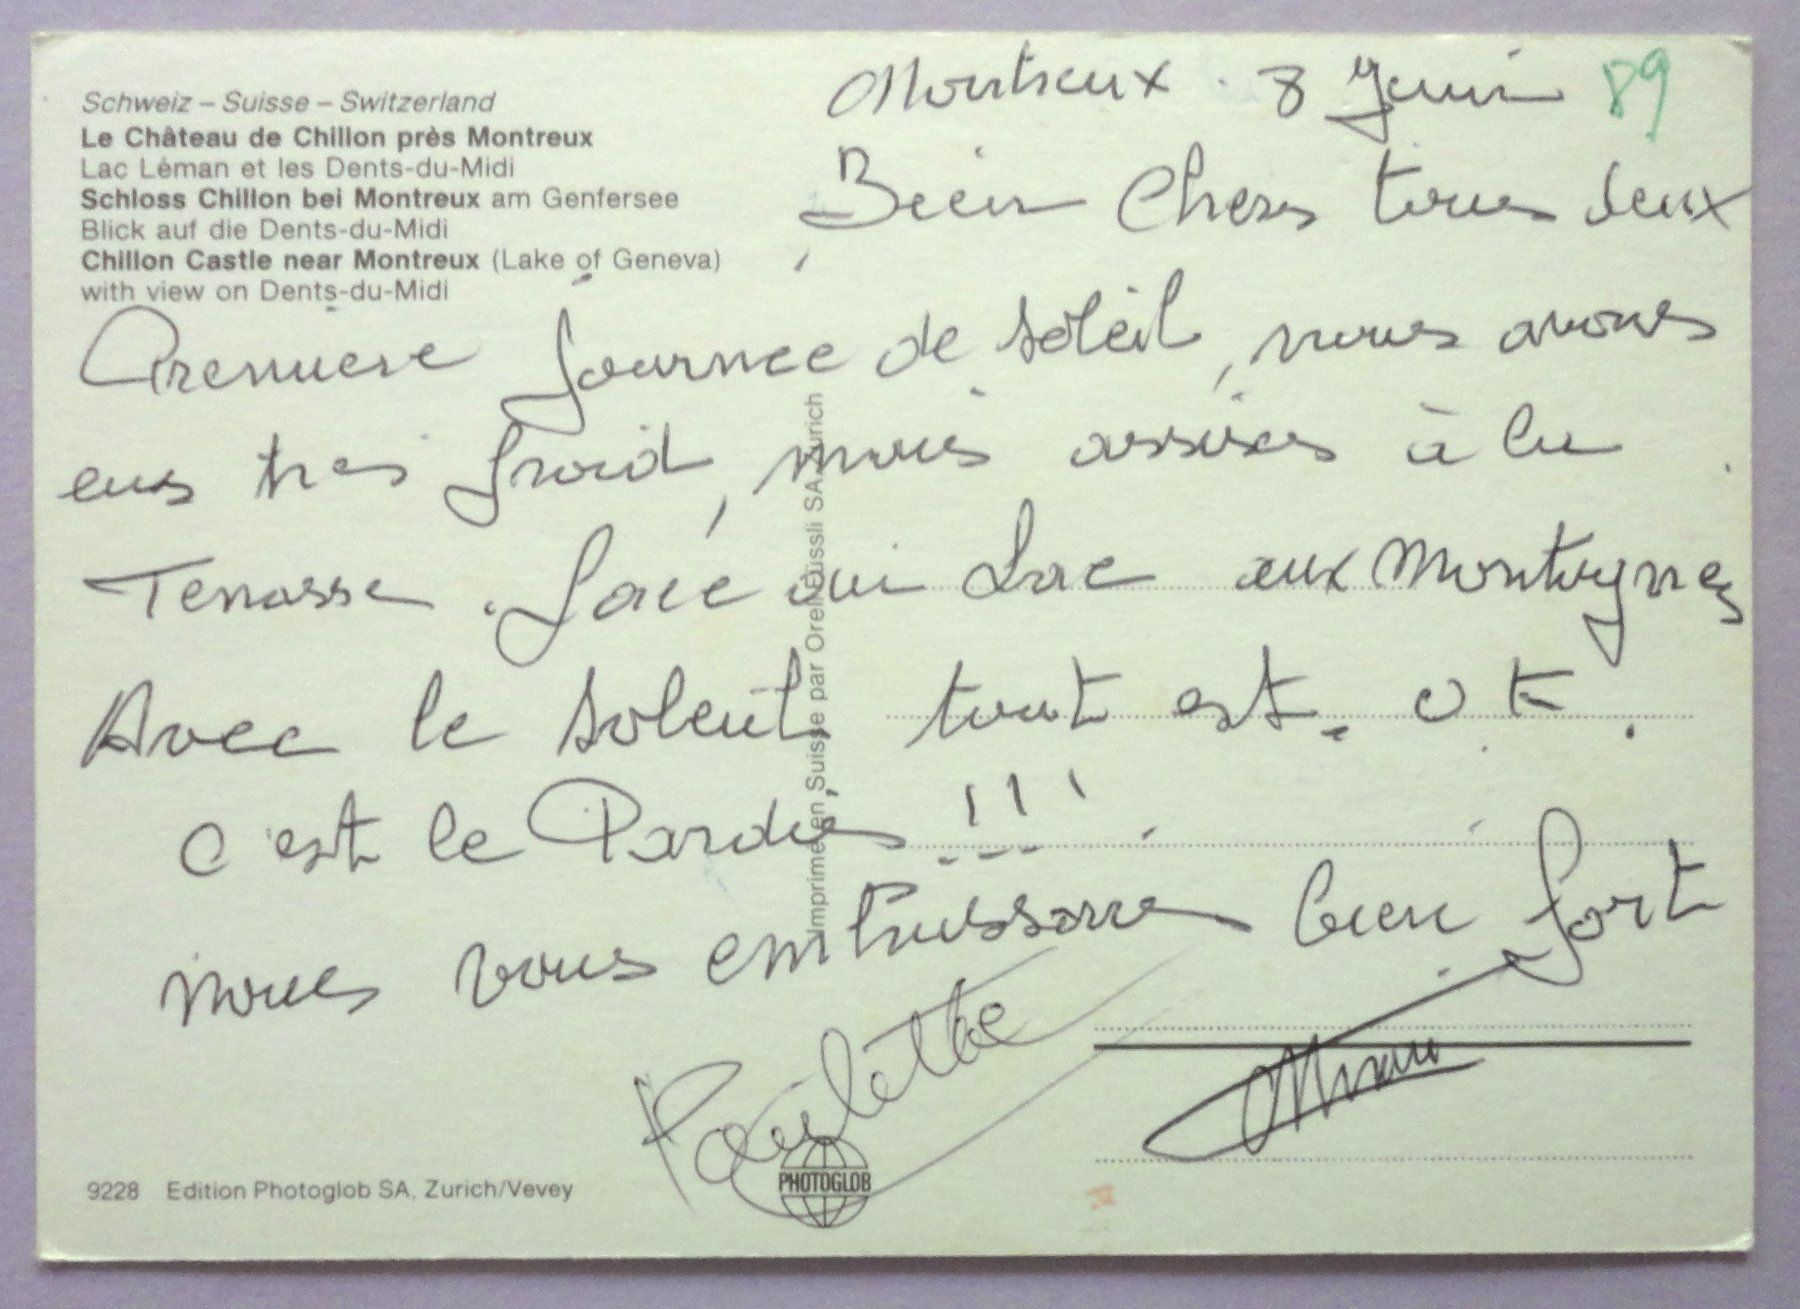 Schweiz – Suisse – Switzerland
Le Château de Chillon près Montreux
Lac Léman et les Dents-du-Midi
Schloss Chillon bei Montreux am Genfersee
Blick auf die Dents-du-Midi
Chillon Castle near Montreux (Lake of Geneva)
with view on Dents-du-Midi
Montreux. 8 Juin 89
Bien Chers tous deux
Premiere Journee de soleil, nous avons
eus tres froid, mais assises à la
Terrasse. Face au Lac aux Montagnes
Avec le soleil tout est. O K.
c'est le Paradis !!!
nous vous embrassons bien fort
Paulette
Imprimé en Suisse par Orell Füssli SA Zurich
9228 Edition Photoglob SA, Zurich/Vevey
PHOTOGLOB